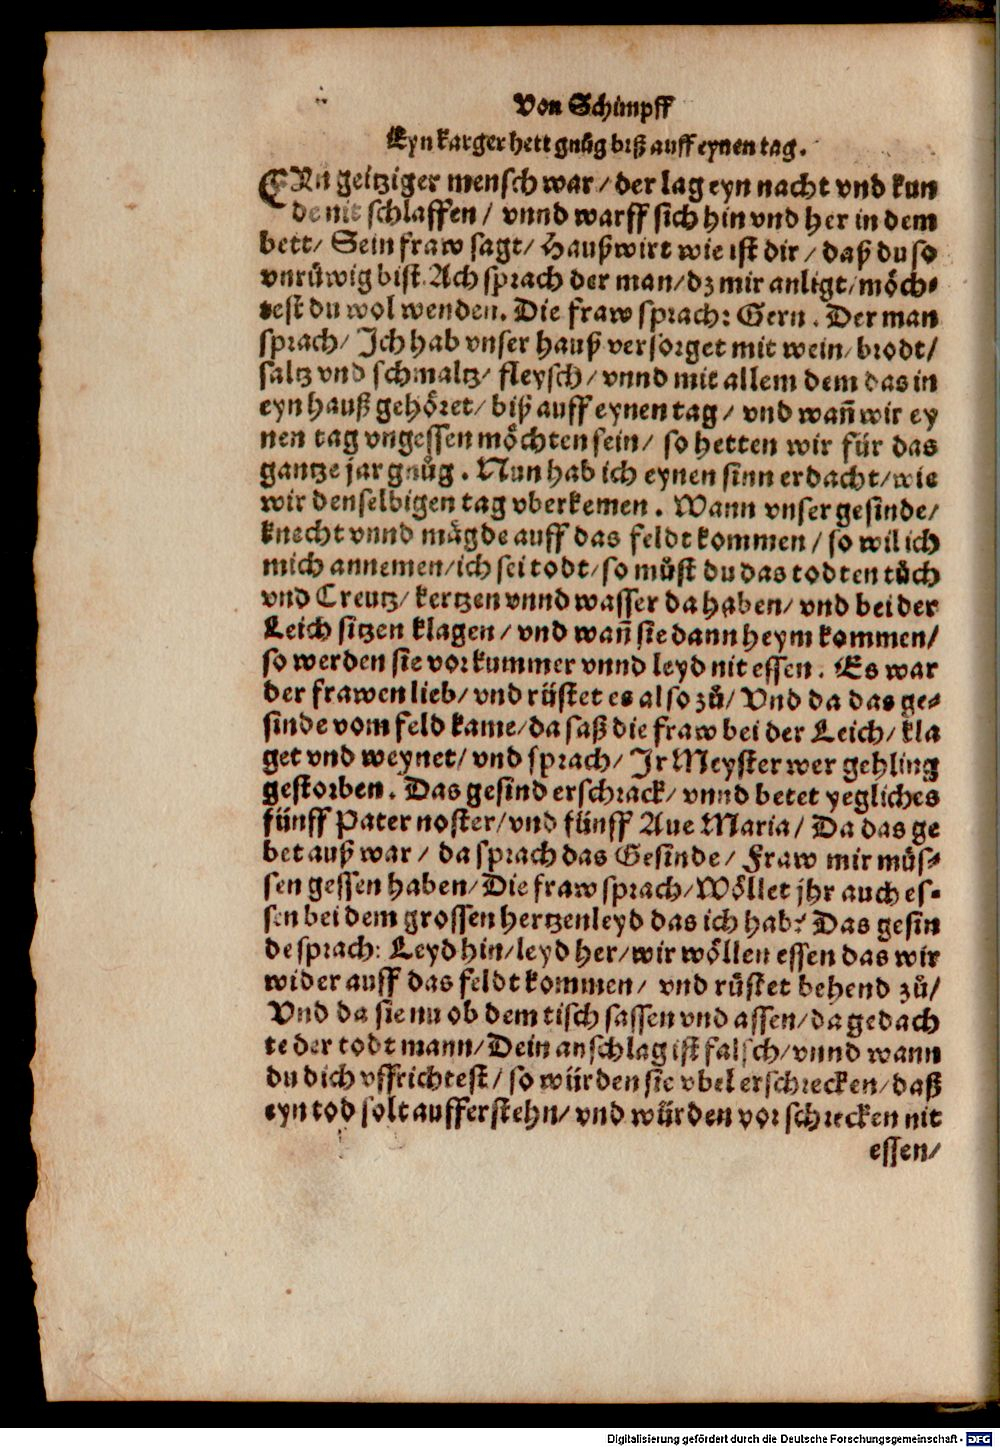 Von Schimpff
Eyn karger hett gnůg biß auff eynen tag.
EYn geitziger mensch war / der lag eyn nacht vnd kun
de nit schlaffen / vnnd warff sich hin vnd her in dem
bett / Sein fraw sagt / Haußwirt wie ist dir / daß du so
vnrüwig bist. Ach sprach der man / dz mir anligt / möch⸗
test du wol wenden. Die fraw sprach: Gern. Der man
sprach / Ich hab vnser hauß versorget mit wein / brodt /
saltz vnd schmaltz / fleysch / vnnd mit allem dem das in
eyn hauß gehöret / biß auff eynen tag / vnd wañ wir ey
nen tag vngessen möchten sein / so hetten wir für das
gantze jar gnůg. Nun hab ich eynen sinn erdacht / wie
wir denselbigen tag vberkemen. Wann vnser gesinde /
knecht vnnd mägde auff das feldt kommen / so wil ich
mich annemen / ich sei todt / so můst du das todten tůch
vnd Creutz / kertzen vnnd wasser da haben / vnd bei der
Leich sitzen klagen / vnd wañ sie dann heym kommen /
so werden sie vor kummer vnnd leyd nit essen. Es war
der frawen lieb / vnd rüstet es also zů / Vnd da das ge⸗
sinde vom feld kame / da saß die fraw bei der Leich / kla
get vnd weynet / vnd sprach / Ir Meyster wer gehling
gestorben. Das gesind erschrack / vnnd betet yegliches
fünff Pater noster / vnd fünff Aue Maria / Da das ge
bet auß war / da sprach das Gesinde / Fraw mir müs⸗
sen gessen haben / Die fraw sprach / Wöllet jhr auch es⸗
sen bei dem grossen hertzenleyd das ich hab? Das gesin
de sprach: Leyd hin / leyd her / wir wöllen essen das wir
wider auff das feldt kommen / vnd rüstet behend zů /
Vnd da sie nu ob dem tisch sassen vnd assen / da gedach
te der todt mann / Dein anschlag ist falsch / vnnd wann
du dich vffrichtest / so würden sie vbel erschrecken / daß
eyn tod solt aufferstehn / vnd würden vor schrecken nit
essen /
Digitalisierung gefördert durch die Deutsche Forschungsgemeinschaft - DFG